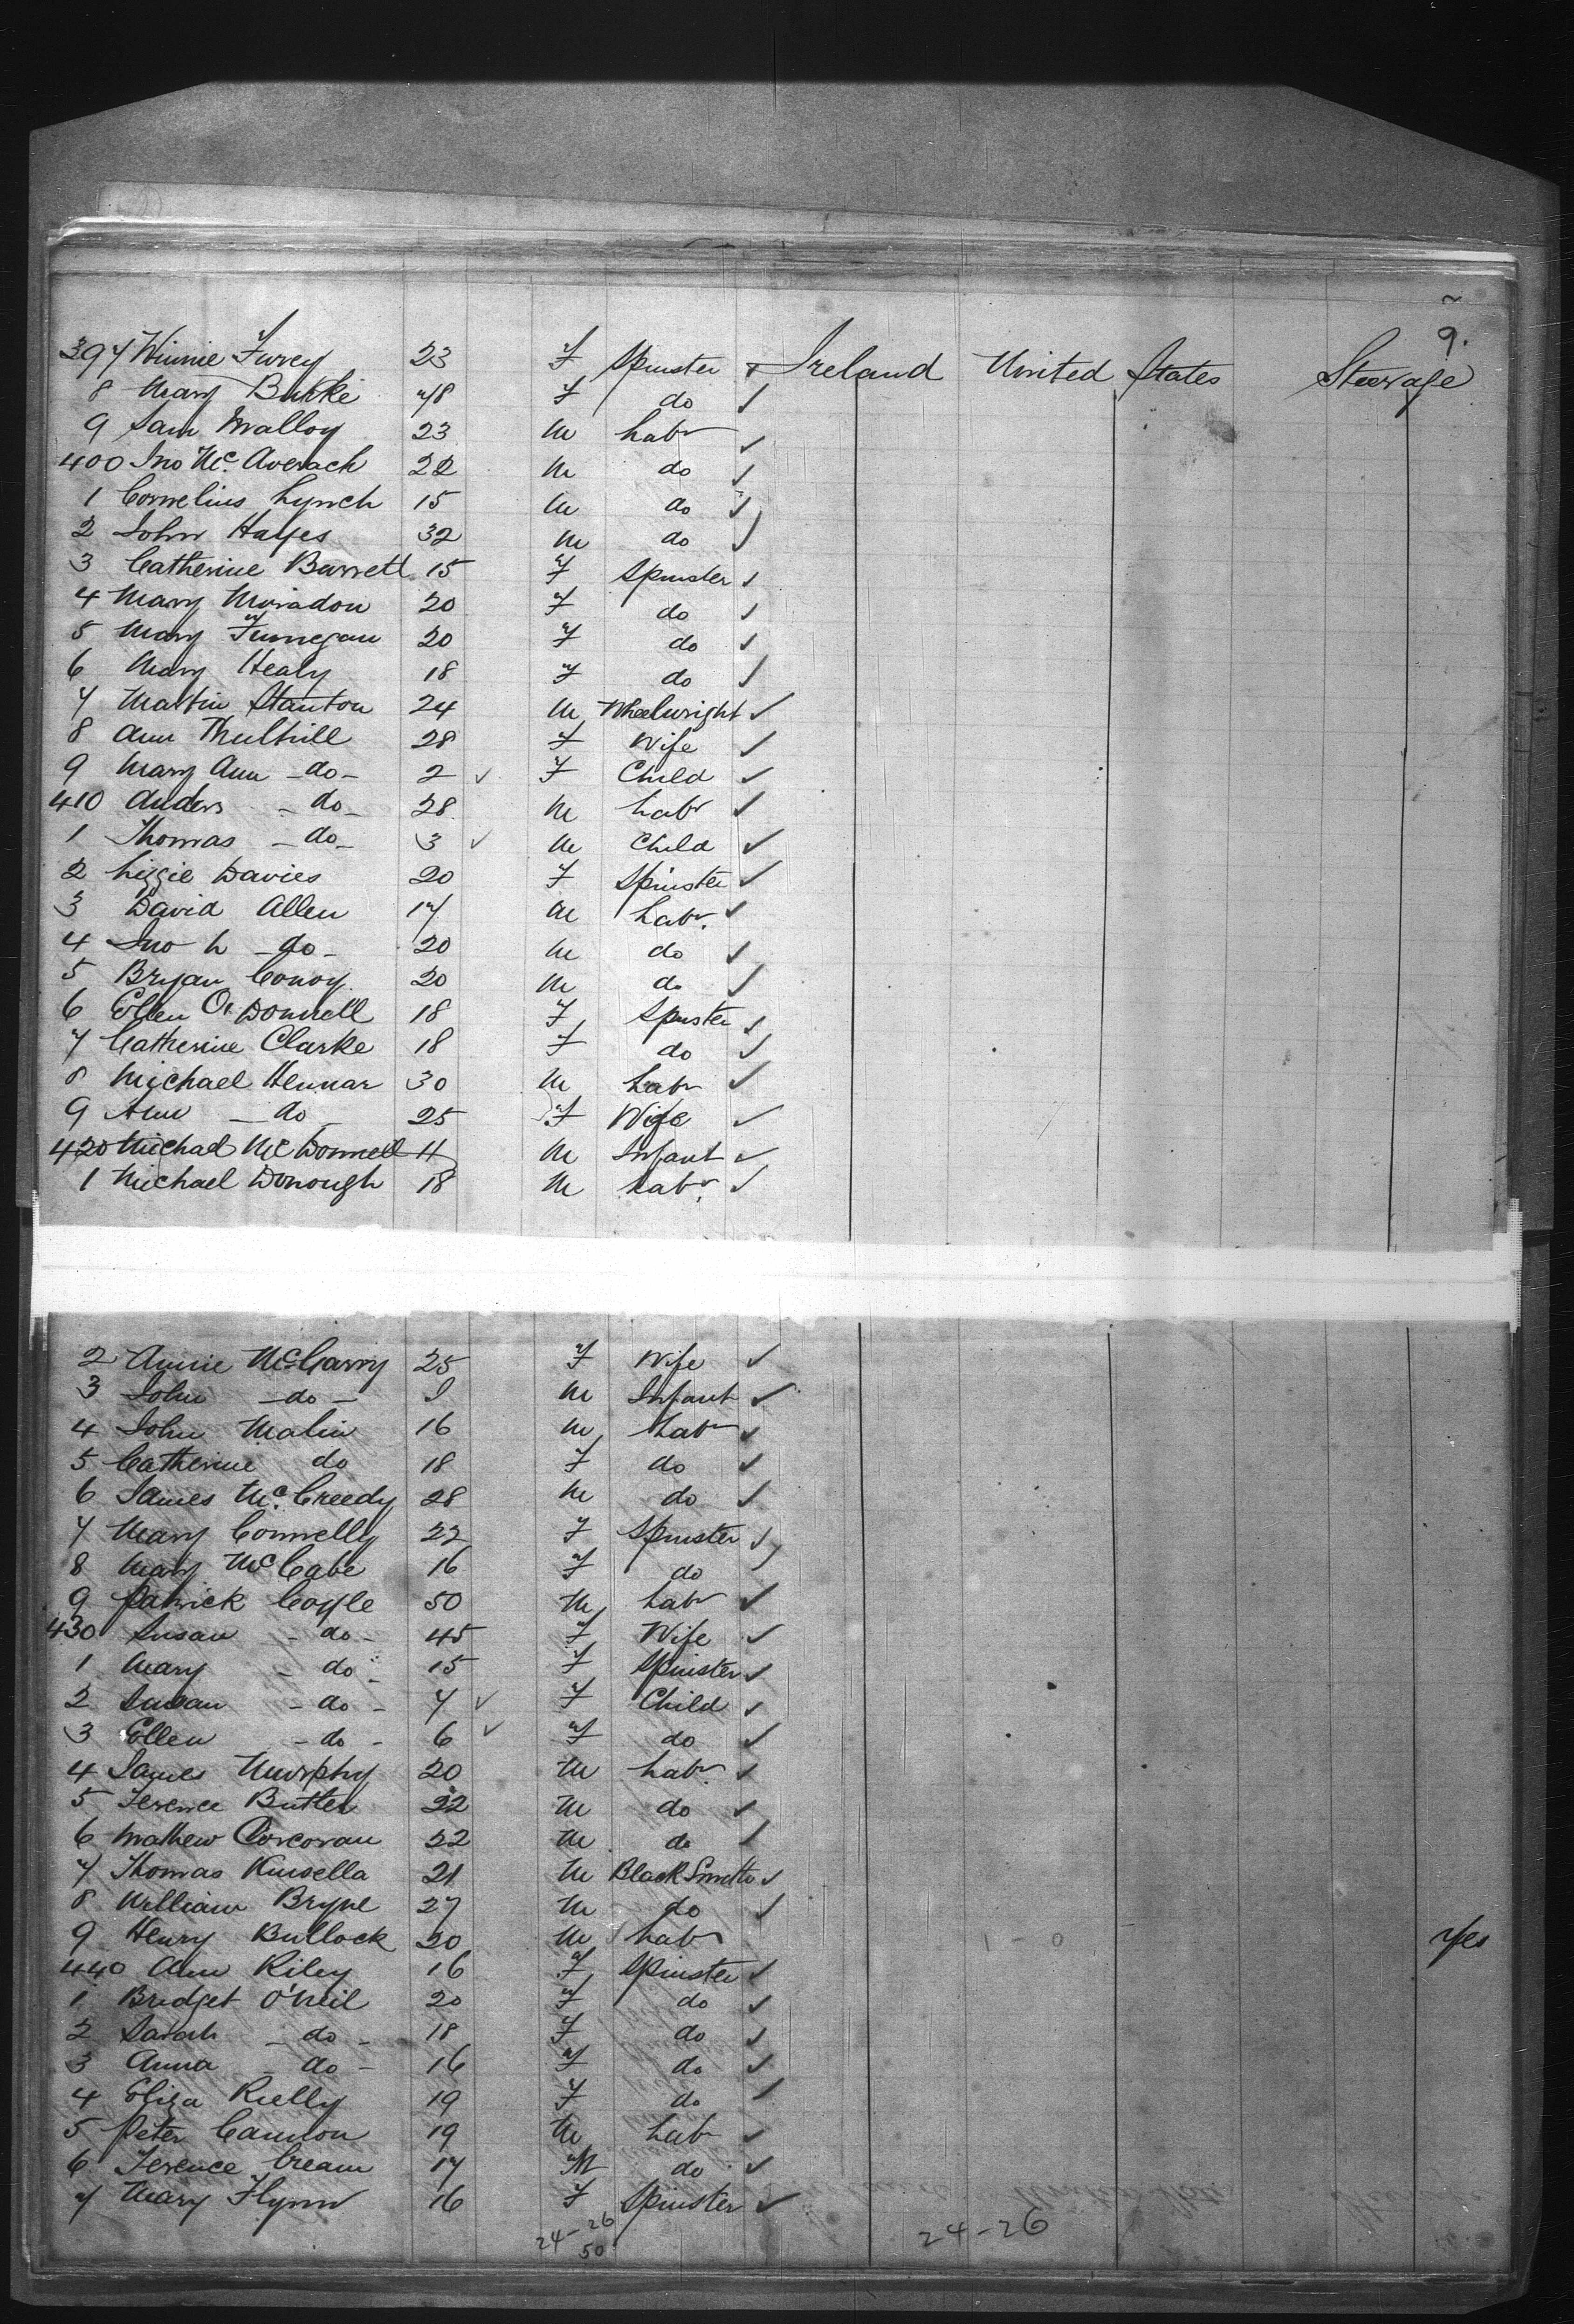 9.
397 Winnie Furey 23 F Spinster Ireland United States Steerage
8 Mary Burke 78 F do
9 Sam Malloy 23 M Labr
400 Jno Mc. Averach 22 M do
1 Cornelius Lynch 15 M do
2 John Hayes 32 M do
3 Catherine Barrett 15 F Spinster
4 Mary 20 F do
5 Mary Finnegan 20 F do
6 Mary Healy 18 F do
7 Martin Stanton 24 M Wheelwright
8 Ann 28 F Wife
9 Mary Ann -do- 2 F Child
410 Anders -do- 28 M Labr
1 Thomas -do- 3 M Child
2 Lizzie Davies 20 F Spinster
3 David Allen 17 M Labr.
4 Jno L -do- 20 M do
5 Bryan Conoy 20 M do
6 Ellen O'Donnell 18 F Spnster
7 Catherine Clarke 18 F do
8 Michael Hennar 30 M Labr
9 Ann -do- 25 F Wife
420 Michael McDonnell 11 M Infant
1 Michael Donough 18 M Labr.
2 Annie McGarry 25 F Wife
3 John -do- M Infant
4 John Malin 16 M Labr
5 Catherine do 18 F do
6 James Mc.Creedy 28 M do
7 Mary Connelly 22 F Spinster
8 Mary McCabe 16 F do
9 Patrick Coyle 50 M Labr
430 Susan -do- 45 F Wife
1 Mary -do- 15 F Spinster
2 Susan -do- 7 F Child
3 Ellen -do- 6 F do
4 James Murphy 20 M Labr.
5 Terence Butler 22 M do
6 Mathew Corcoran 22 M do
7 Thomas Kinsella 21 M BlackSmith
8 William Bryne 27 M do
9 Henry Bullock 20 M Labr 1 - 0 Yes
440 Ann Riley 16 F Spinster
1 Bridget O'Neil 20 F do
2 Sarah -do- 18 F do
3 Anna -do- 16 F do
4 Eliza Rielly 19 F do
5 Peter Cannon 19 M Labr
6 Terence Cream 17 M do
7 Mary Flynn 16 F Spinster
24-26 24-26
50